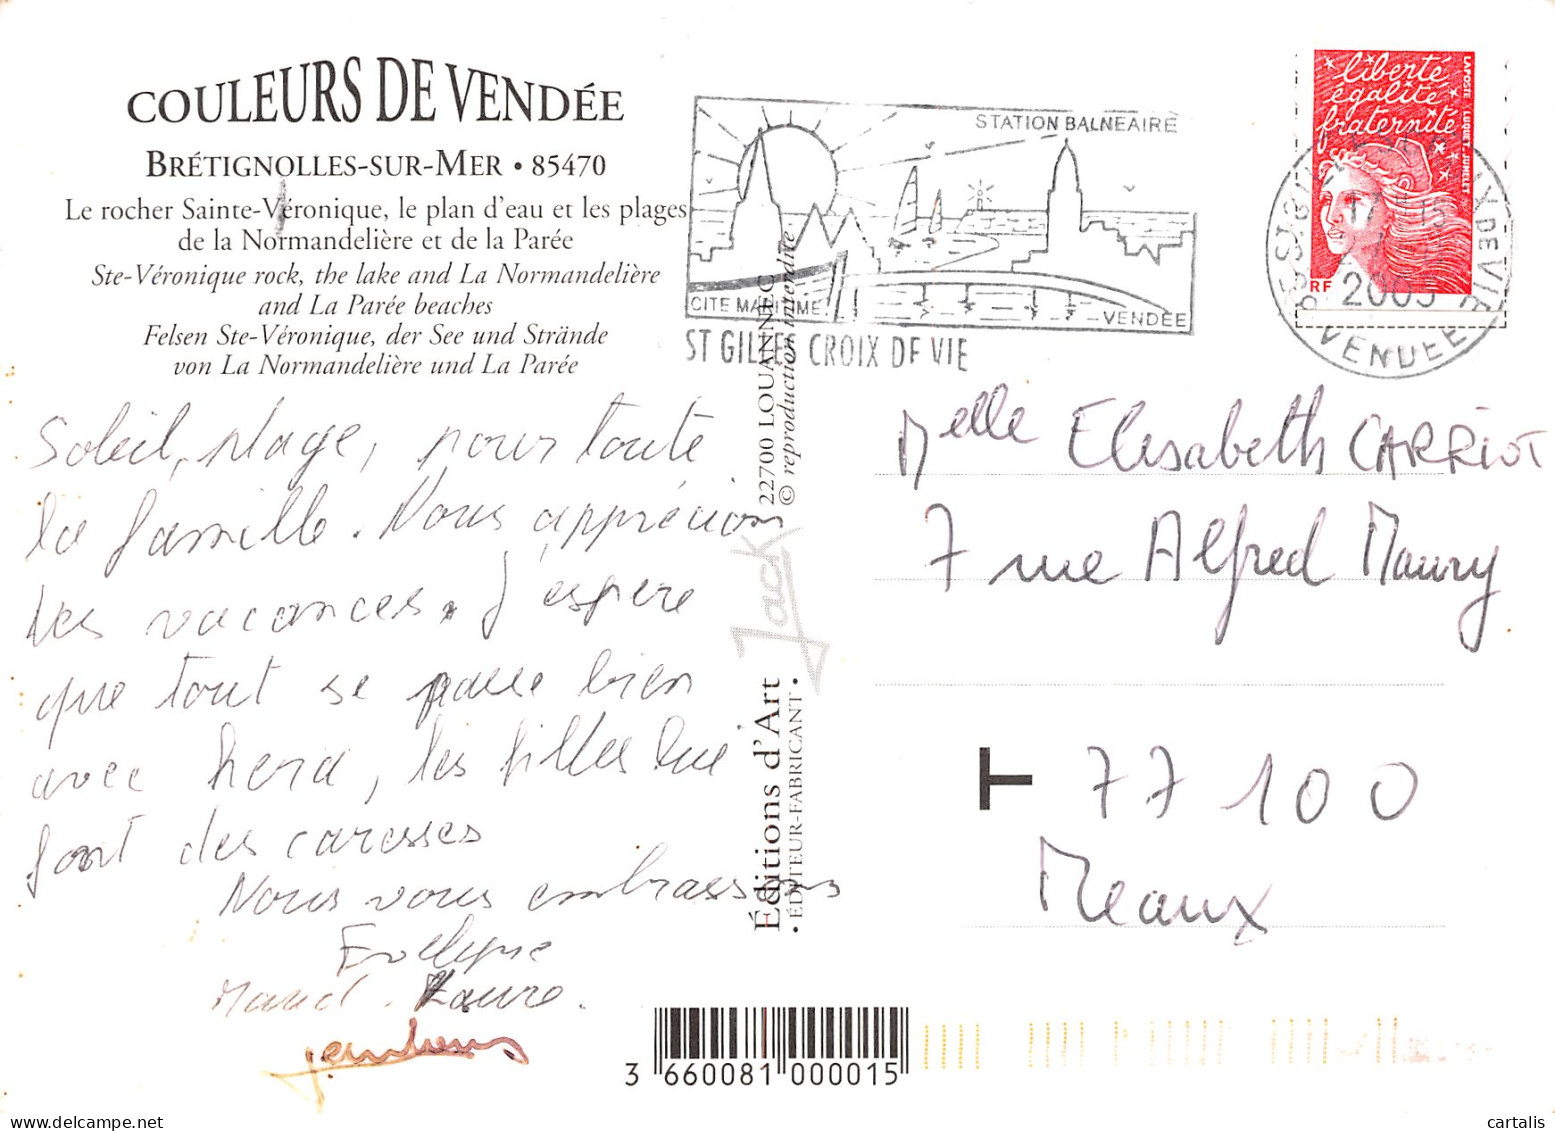 COULEURS DE VENDÉE
BRÉTIGNOLLES-SUR-MER • 85470
Le rocher Sainte-Véronique, le plan d'eau et les plages
de la Normandelière et de la Parée
Ste-Véronique rock, the lake and La Normandelière
and La Parée beaches
Felsen Ste-Véronique, der See und Strände
von La Normandelière und La Parée
Soleil, plage, pour toute
la famille. Nous apprécions
les vacances. J'espère
que tout se passe bien
avec hera, les filles lui
font des caresses
Nous vous embrassons
Evelyne
Marcel. Laure.
STATION BALNEAIRE
CITE MARITIME
VENDEE
ST GILLES CROIX DE VIE
liberté
égalité
fraternité
LAPOSTE LUQUET JUMELET
RF
17
2003
VENDEE
Melle Elisabeth CARRIOT
7 rue Alfred Maury
T 77100
Meaux
Éditions d'Art Jack 22700 LOUANNEC
• ÉDITEUR-FABRICANT • © reproduction interdite
3 660081 000015
cartalis